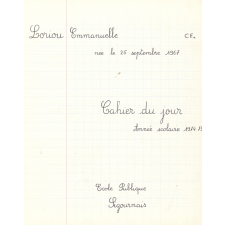 Louou Emmanuelle C.E.
née le 25 septembre 1967
Cahier du jour
Année scolaire 1974
Ecole Publique
Sigournais